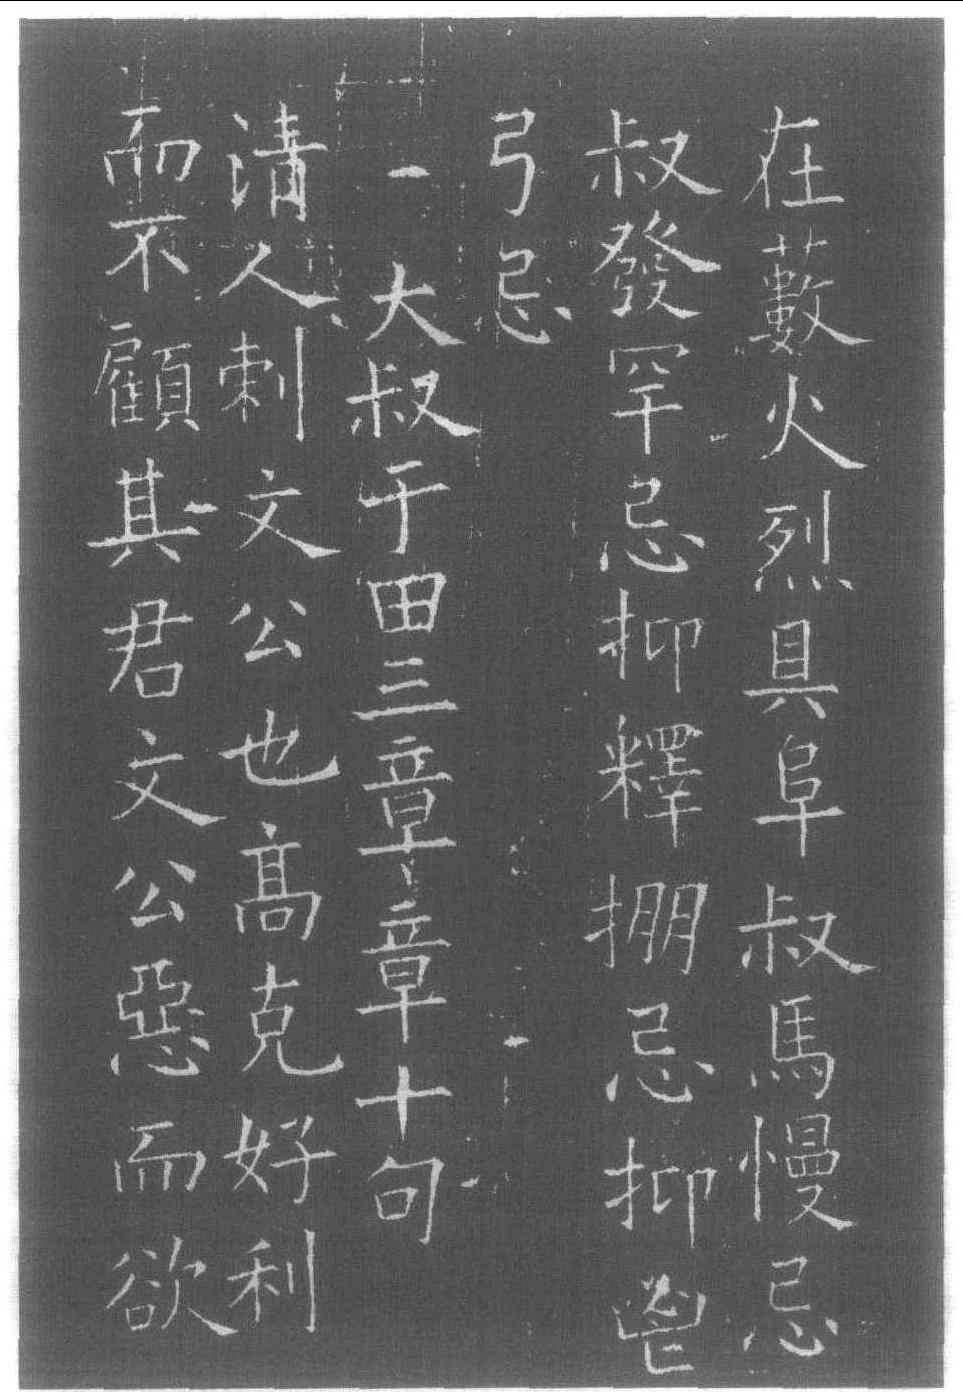 在藪火烈具阜叔馬慢忌
叔發罕忌抑釋掤忌抑鬯
弓忌
一大叔于田三章章十句
清人刺文公也高克好利
而不顧其君文公惡而欲